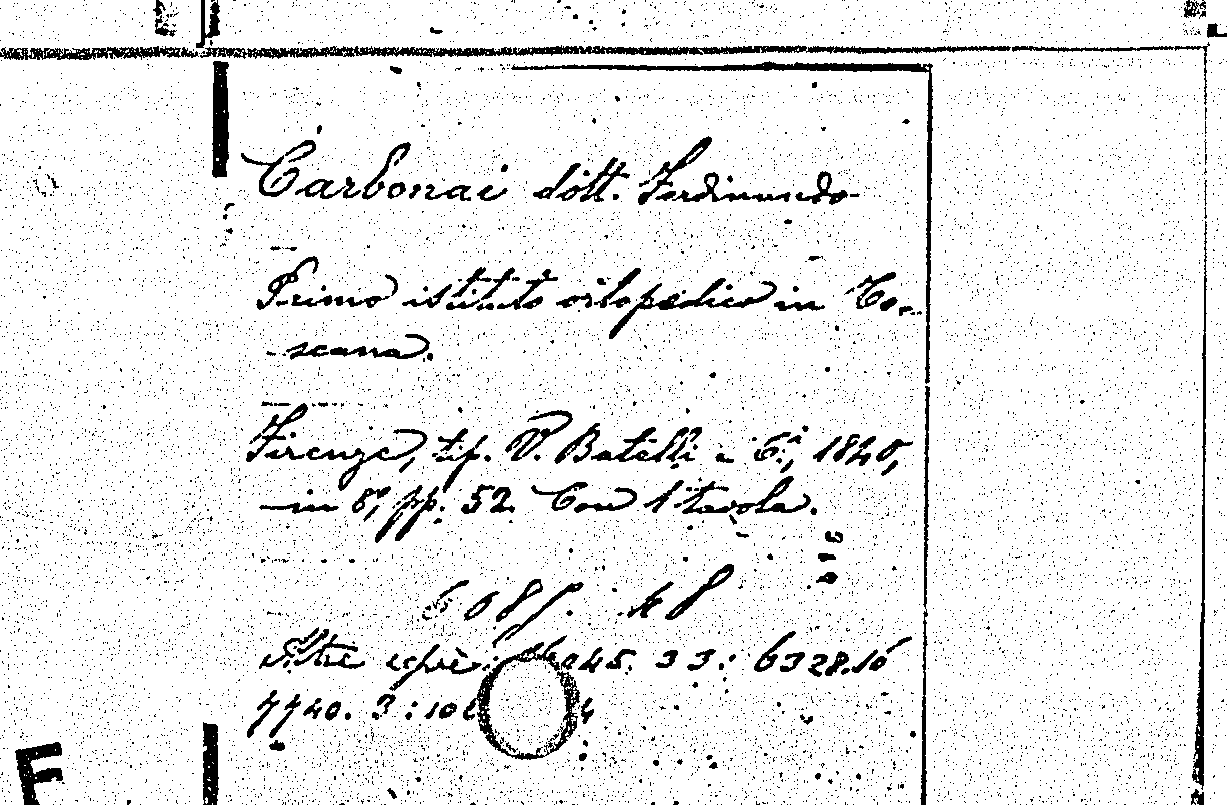 Carbonai dott. Ferdinando
Primo istituto ortopedico in To-
scana.
Firenze, tip. V. Batelli e C.i, 1840,
in 8º, pp. 52. Con 1 tavola.
6085. 48
Altre copie: 33: 6328.16
7740. 3:
F